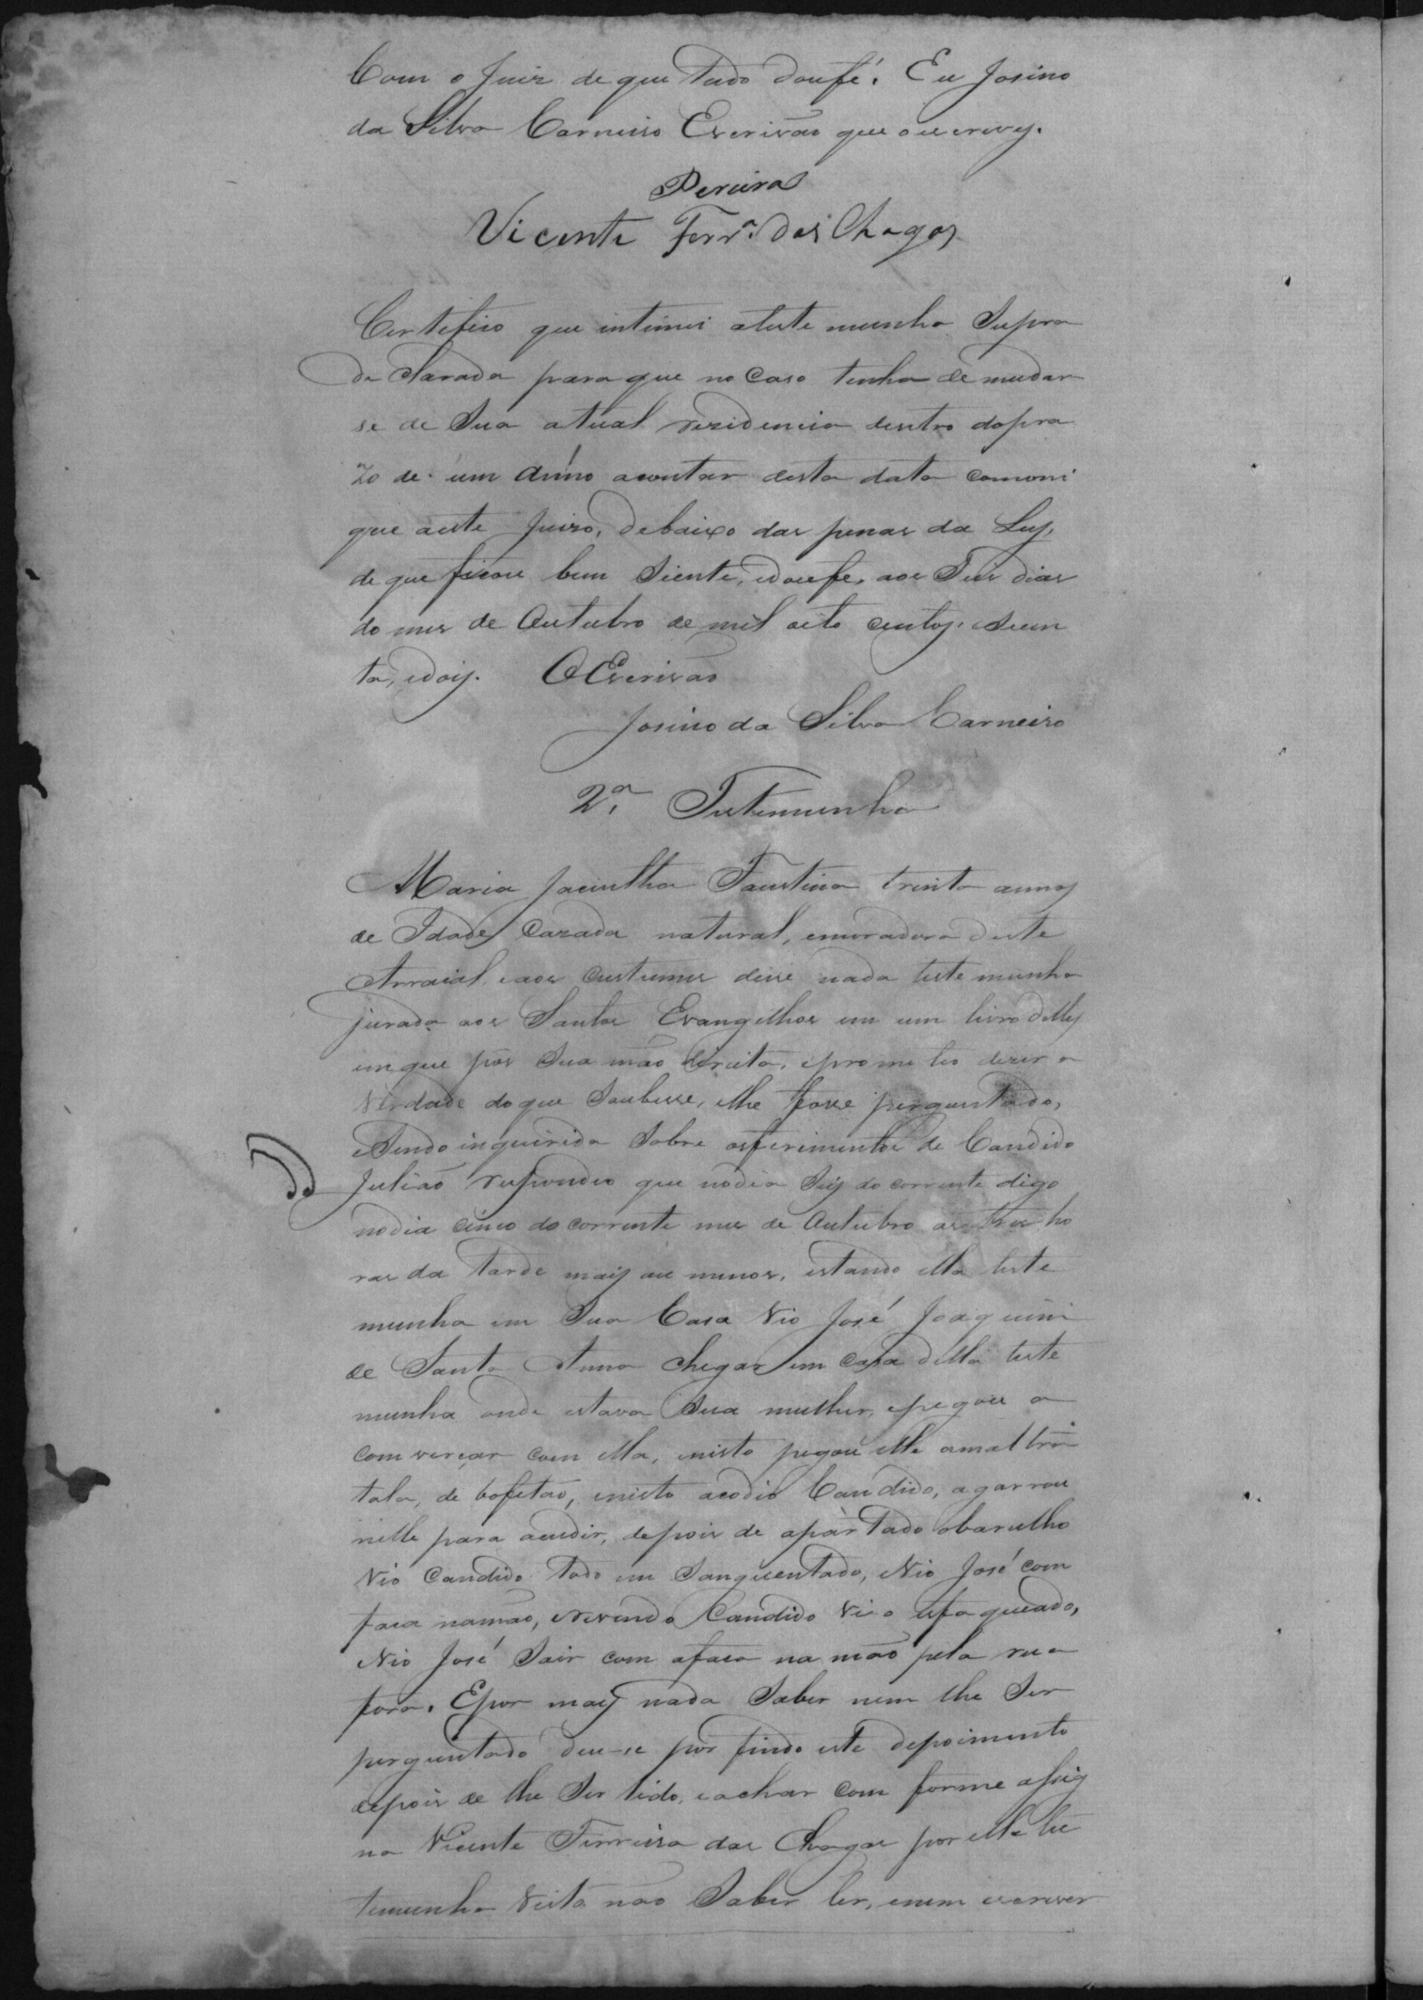 Com o Juiz de que tudo doufé. Eu Josino
da Silva Carneiro Escrivão que o escrevy.
Pereira
Vicente Ferrª das Chagas
Certifico que intimei ateste munha Supra
de clarada para que no caso tenha de mudar
se de Sua atual residencia dentro dopra
zo de um anno acontar desta data comoni
que aeste Juizo, debaixo das penas da Ley,
de que ficou bem Siente, edoufe, aos Seis dias
do mes de Outubro de mil oito centos, esecen
ta, edois. O Escrivão
Josino da Silva Carneiro
2ª Testemunha
Maria Jacintha Faustina trinta annos
de Idade, Cazada natural, emoradora deste
Arraial, eaos custumes disse nada teste munha
jurada aos Santos Evangelhos em um livro delles
emque pôs Sua mão direita, eprome teo dizer a
Verdade doque Soubesse, elhe fosse perguntado,
eSendo inquirida Sobre osferimentos de Candido
Julião respondeo que nodia Seis do corrente digo
nodia cinco do corrente mes de Outubro as tres ho
ras da tarde mais ou menos, estando ella teste
munha em Sua Casa Vio José Joaquim
de Santa Anna chegar em casa della teste
munha onde estava Sua mulher, epegou a
com verçar com ella, enisto pegou elle amaltra
tala, de bofetão, enisto acodio Candido, agarrou
nelle para acudir, depois de apartado obarulho
Vio Candido todo em Sanguentado, eVio José com
faca namão, evendo Candido Vio esfaqueado,
eVio José Sair com afaca na mão pela rua
fora. Epor mais nada Saber nem lhe Ser
perguntado deu-se por findo este depoimento
depois de lhe Ser lido, eachar com forme assig
na Vicente Ferreira das Chagas por ella tes
temunha Visto não Saber ler, enem escrever